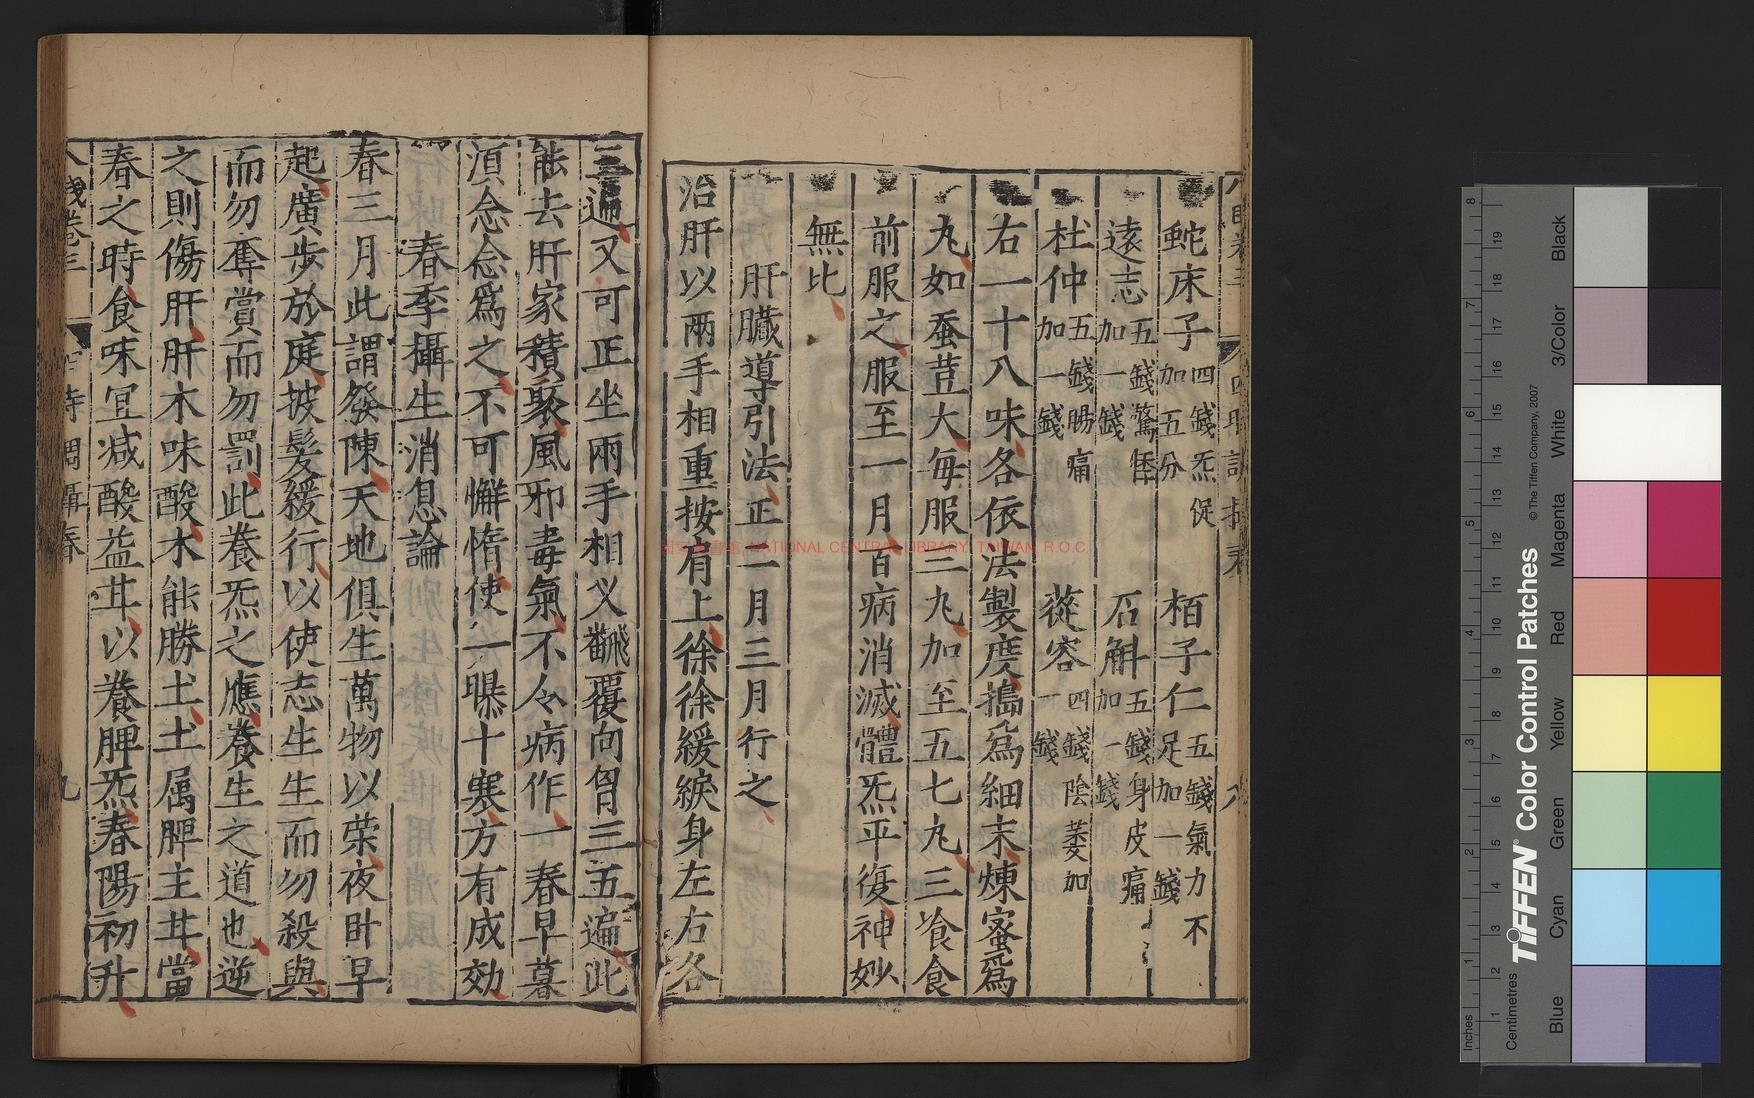 蛇床子四錢炁促加五分 栢子仁五錢氣力不足加一錢
遠志五錢驚悸加一錢 石斛五錢身皮痛加一錢
杜仲五錢腸痛加一錢 蓯容四錢陰萎加一錢
右一十八味各依法製度搗爲細末煉蜜爲
丸如蚕荳大每服三九加至五七丸三飡食
前服之服至一月百病消滅體炁平復神妙
無比
肝臟導引法正二月三月行之
治肝以兩手相重按肩上徐徐緩綟身左右各
三遍又可正坐兩手相义飜覆向胷三五遍此
能去肝家積聚風邪毒氣不令病作一春早暮
湏念念爲之不可懈惰使一曝十寒方有成効
春季攝生消息論
春三月此謂發陳天地俱生萬物以荣夜卧早
起廣步於庭披髮緩行以使志生生而勿殺與
而勿奪賞而勿罰此養炁之應養生之道也逆
之則傷肝肝木味酸木能勝土土属脾主甘當
春之時食味冝减酸益甘以養脾炁春陽初升
八牋卷三
四時調攝春
九
NATIONAL CENTRAL LIBRARY, TAIWAN, R.O.C
TIFFEN® Color Control Patches
© The Tiffen Company, 2007
Blue Cyan Green Yellow Red Magenta White 3/Color Black
Inches
Centimetres